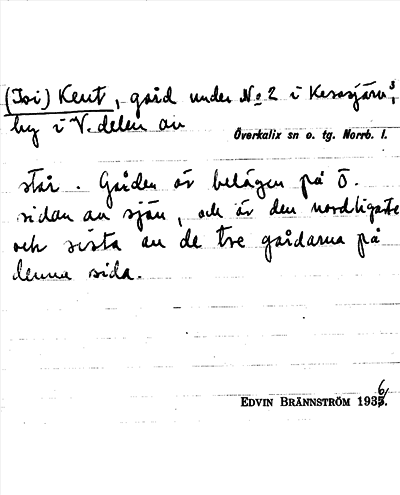 (Isi) Kent, gård under No 2 i Kesasjärv,
by i V. delen av
Överkalix sn o. tg. Norrb. l.
står. Gården är belägen på Ö.
sidan av sjön, och är den nordligaste
och sista av de tre gårdarna på
denna sida.
EDVIN BRÄNNSTRÖM 1936.